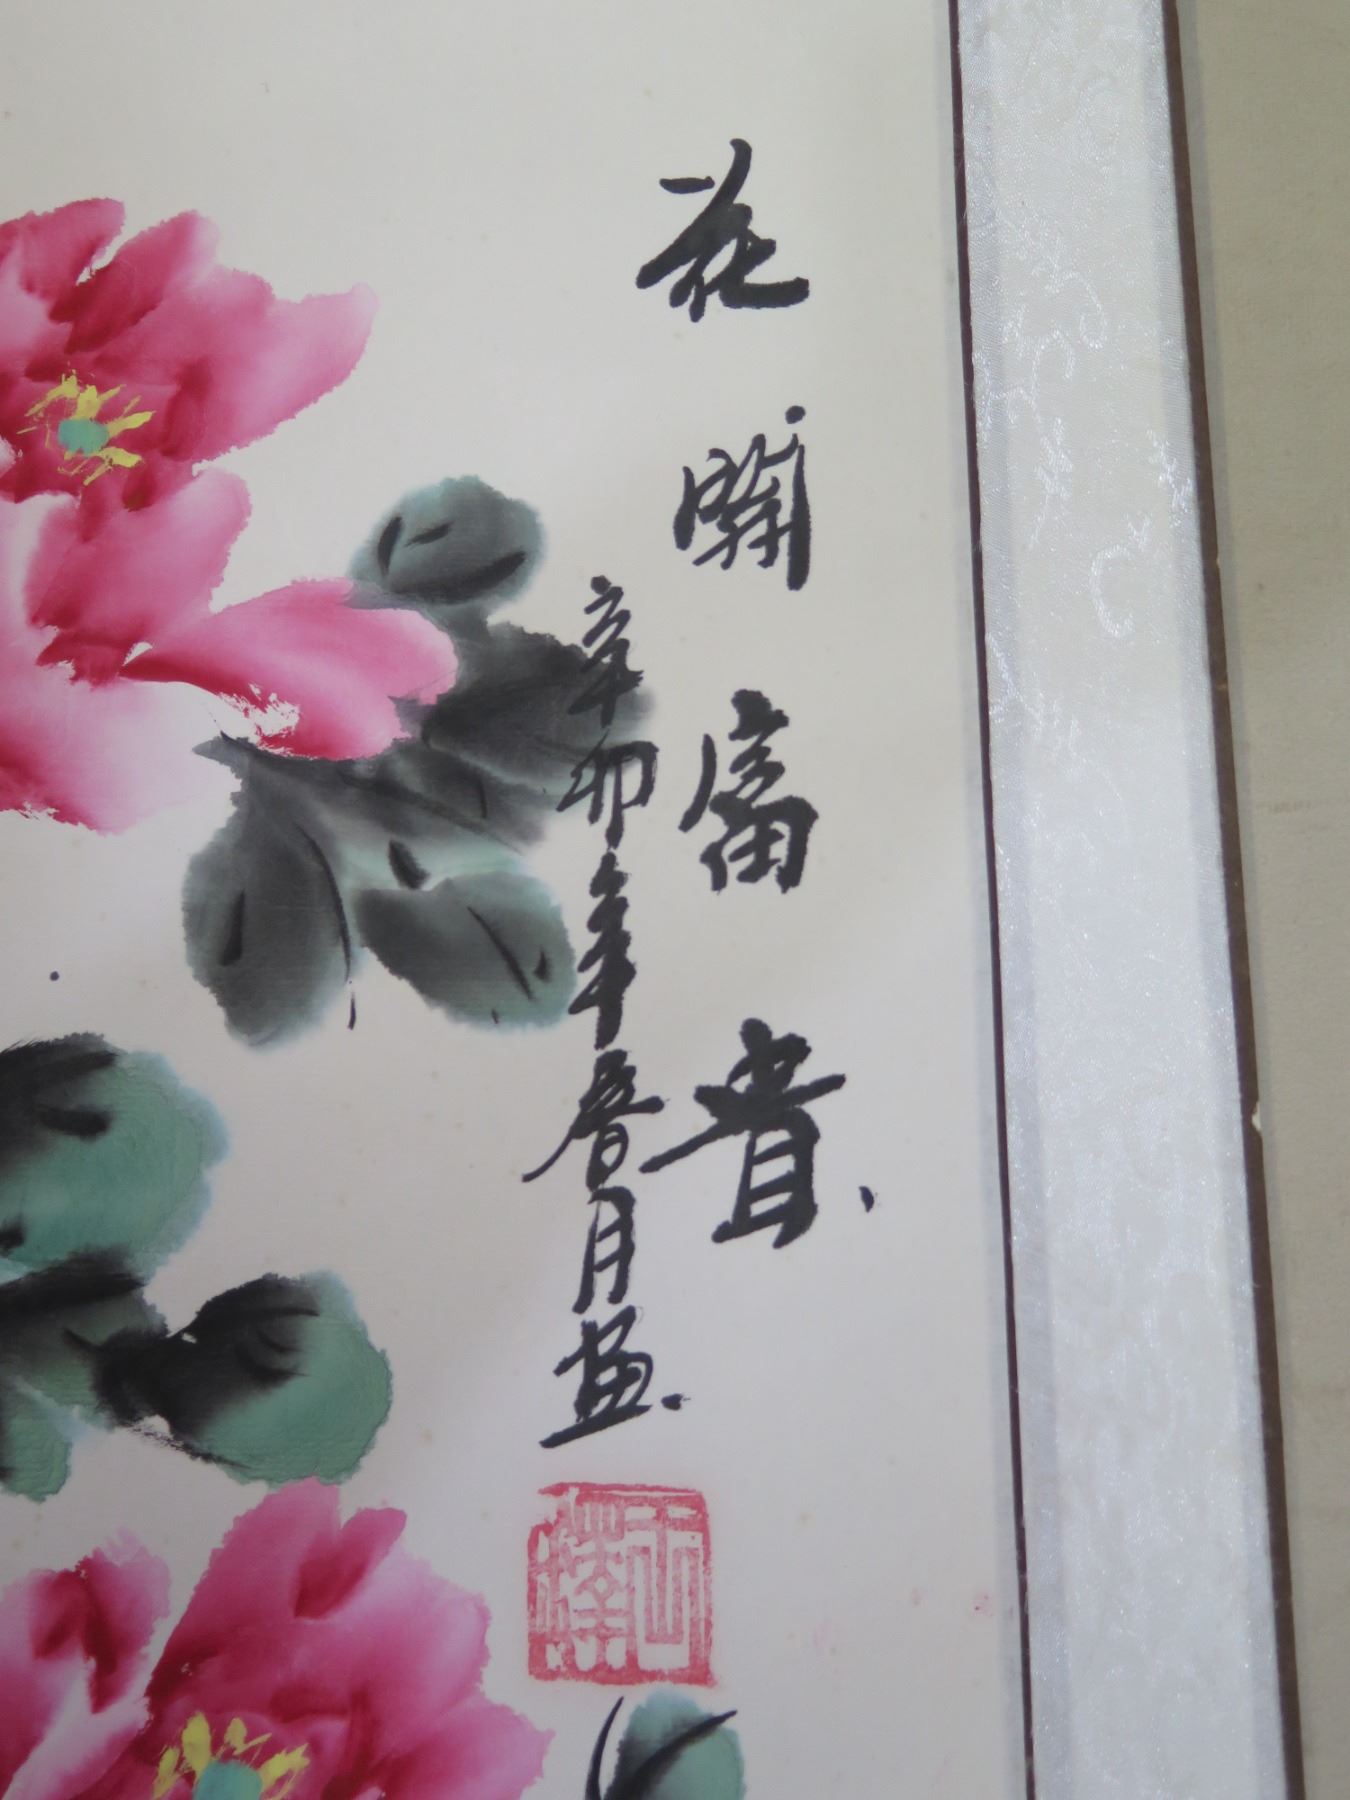 花開富貴
辛卯年春月畫